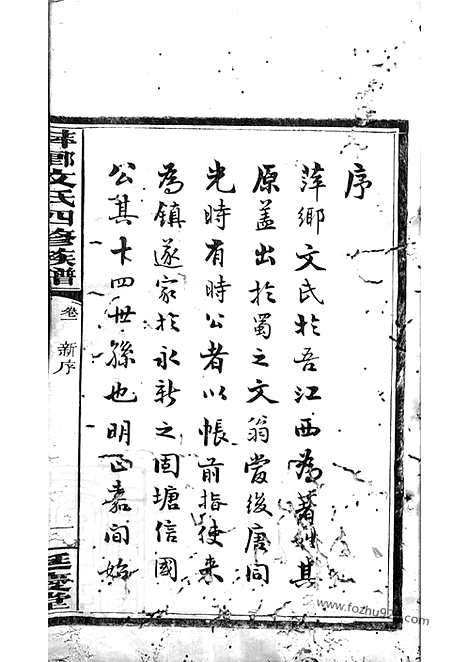 序
萍鄉文氏於吾江西為著姓其
原蓋出於蜀之文翁當後唐同
光時有時公者以帳前指使來
為鎮遂家於永新之固塘信國
公其十四世孫也明正嘉間始
萍鄉文氏四修族譜
卷一
新序
一
延慶堂
www.fozhu920.com